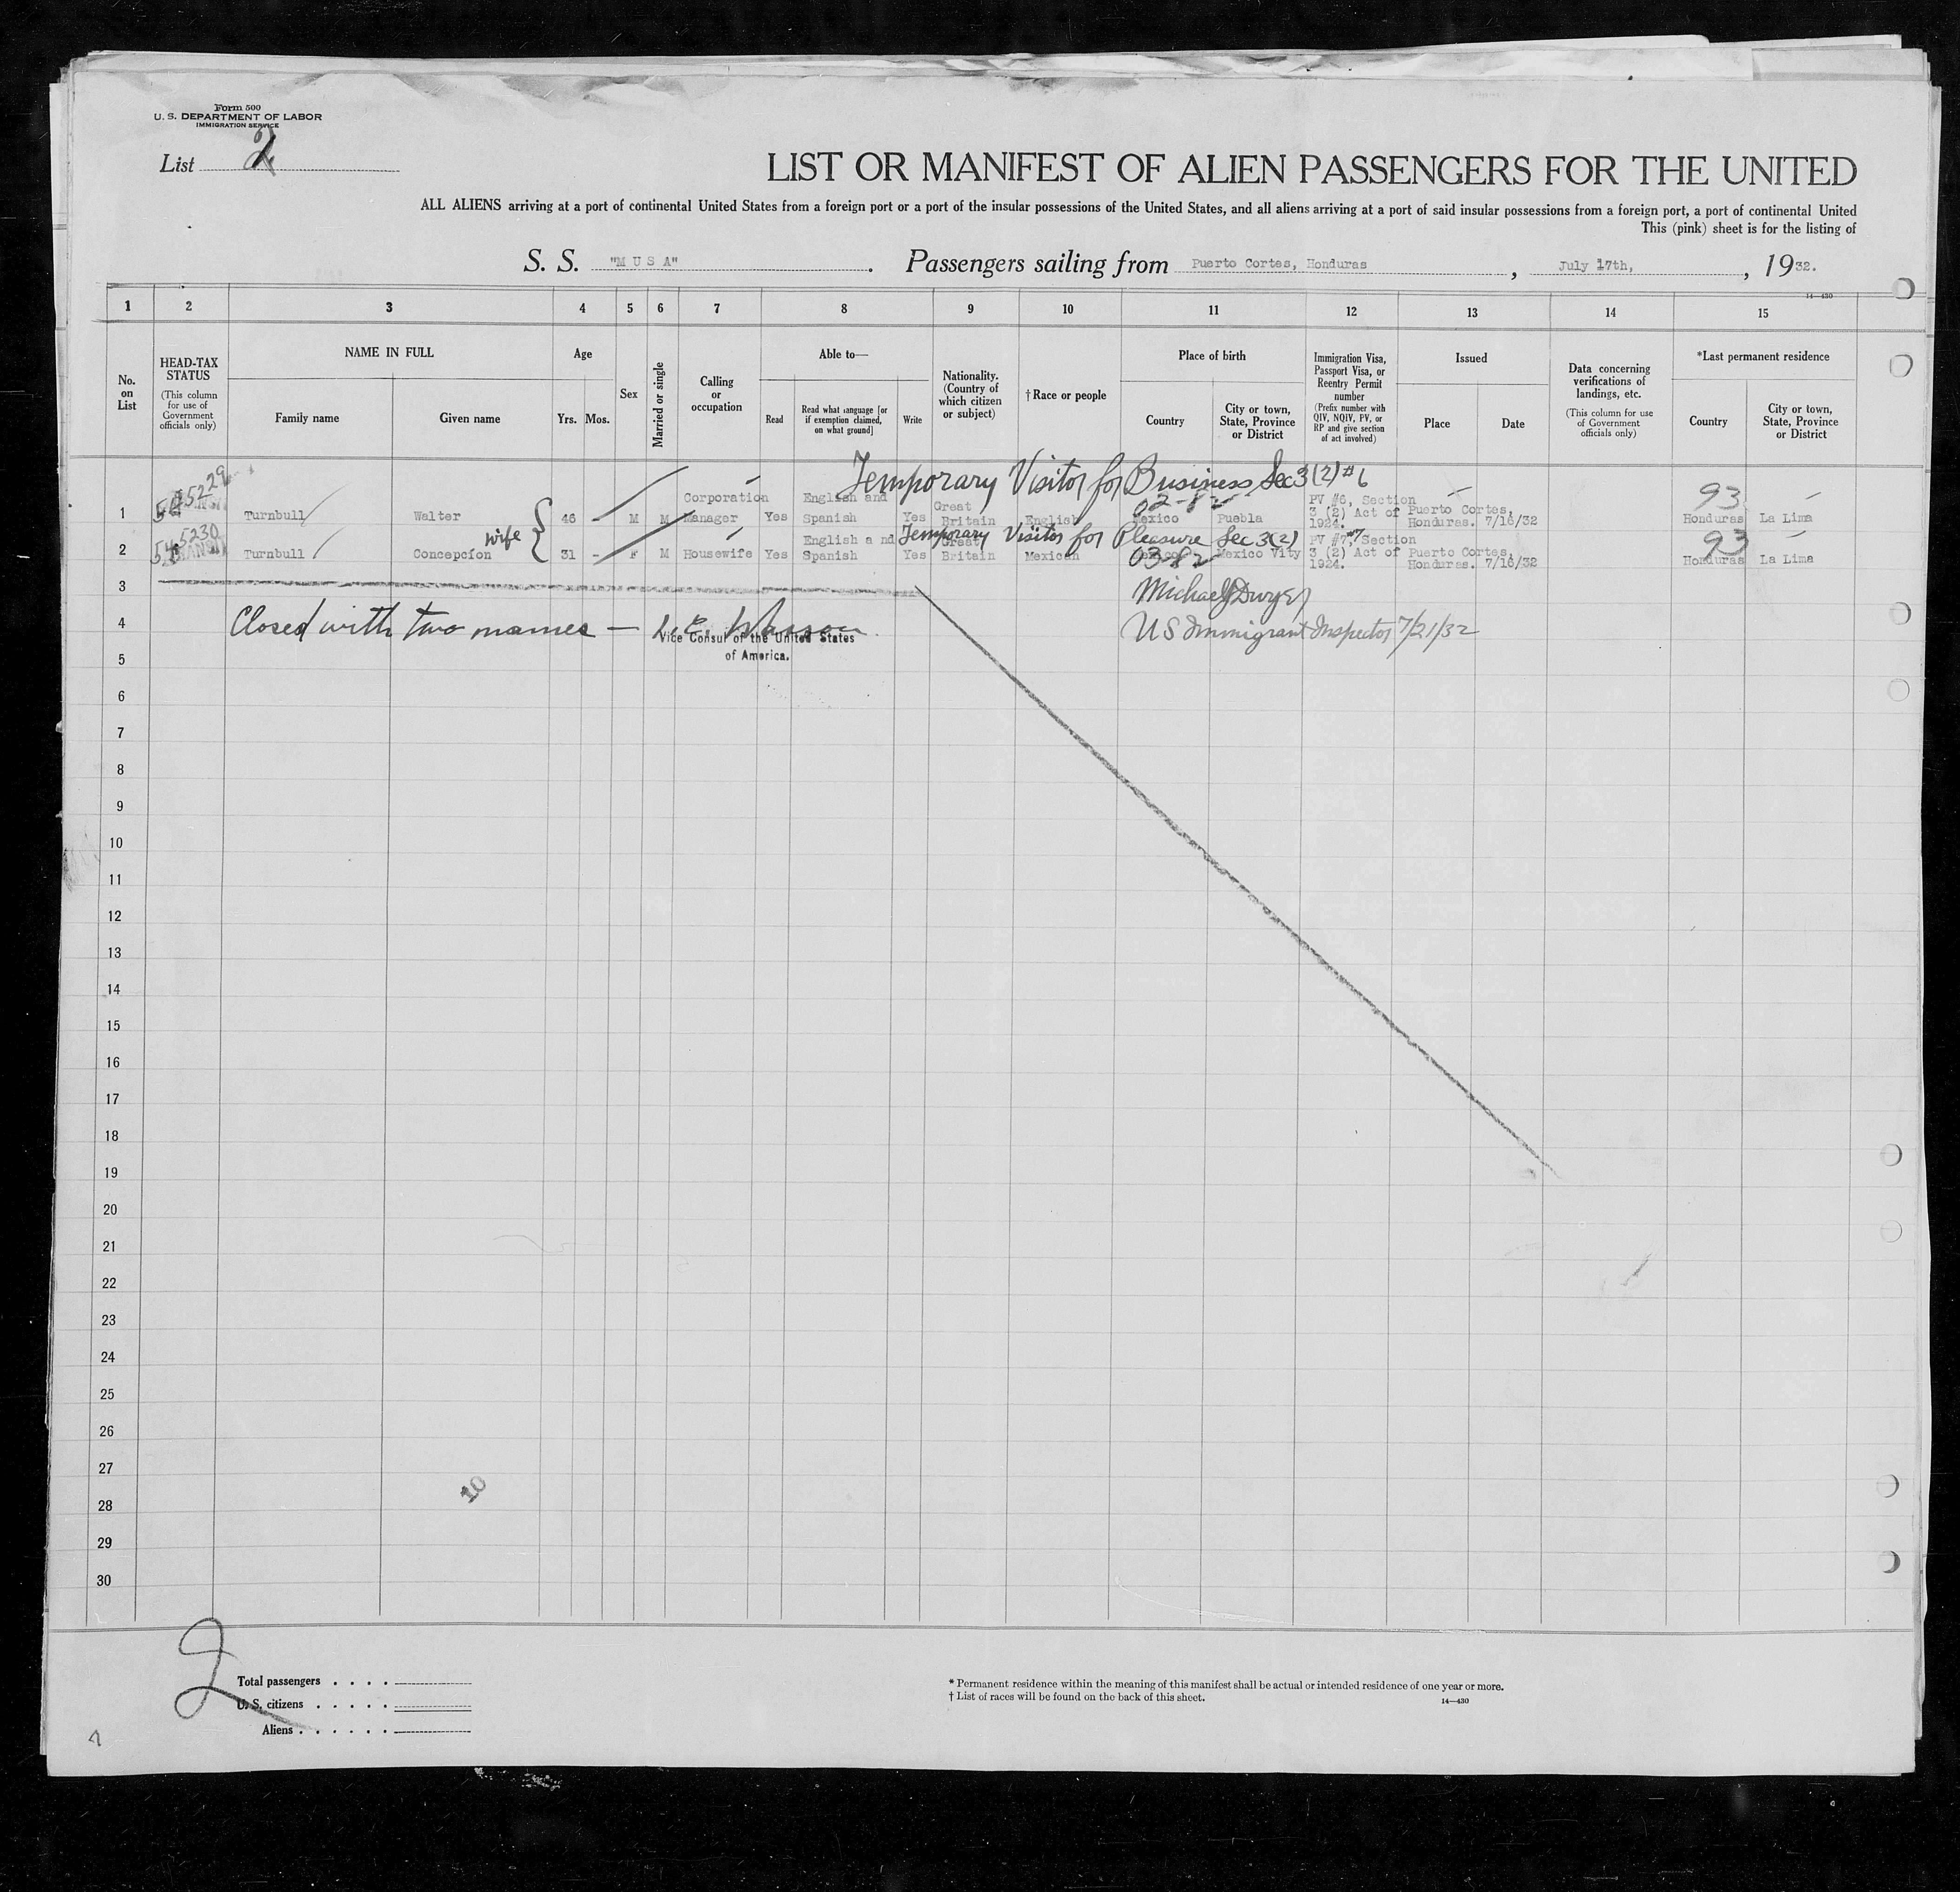 Form 500
U. S. DEPARTMENT OF LABOR
IMMIGRATION SERVICE
List 2
LIST OR MANIFEST OF ALIEN PASSENGERS FOR THE UNITED
ALL ALIENS arriving at a port of continental United States from a foreign port or a port of the insular possessions of the United States, and all aliens arriving at a port of said insular possessions from a foreign port, a port of continental United
This (pink) sheet is for the listing of
S. S. "M U S A" . Passengers sailing from Puerto Cortes, Honduras , July 17th, , 1932.
14—430
1 2 3 4 5 6 7 8 9 10 11 12 13 14 15
No. on List
HEAD-TAX STATUS
(This column for use of Government officials only)
NAME IN FULL
Family name Given name
Age
Yrs. Mos.
Sex
Married or single
Calling or occupation
Able to—
Read
Read what language [or if exemption claimed, on what ground]
Write
Nationality. (Country of which citizen or subject)
† Race or people
Place of birth
Country
City or town, State, Province or District
Immigration Visa, Passport Visa, or Reentry Permit number
(Prefix number with QIV, NQIV, PV, or RP and give section of act involved)
Issued
Place Date
Data concerning verifications of landings, etc.
(This column for use of Government officials only)
*Last permanent residence
Country
City or town, State, Province or District
Temporary Visitor for Business Sec 3(2) #6
1 Turnbull Walter 46 - M M Corporation Manager Yes English and Spanish Yes Great Britain English Mexico Puebla PV #6, Section 3 (2) Act of 1924. Puerto Cortes, Honduras. 7/16/32 93 Honduras La Lima
Temporary Visitor for Pleasure Sec 3(2) #7
2 Turnbull Concepcion wife 31 - F M Housewife Yes English a nd Spanish Yes Great Britain Mexican Mexico Vity PV #7, Section 3 (2) Act of 1924. Puerto Cortes, Honduras. 7/16/32 93 Honduras La Lima
3 Michael J Dwyer
4 Closed with two names —
US Immigrant Inspector 7/21/32
Vice Consul of the United States
of America.
5
6
7
8
9
10
11
12
13
14
15
16
17
18
19
20
21
22
23
24
25
26
27
28
29
30
10
2
Total passengers . . . .
U. S. citizens . . . . .
Aliens . . . . . .
* Permanent residence within the meaning of this manifest shall be actual or intended residence of one year or more.
† List of races will be found on the back of this sheet.
14—430